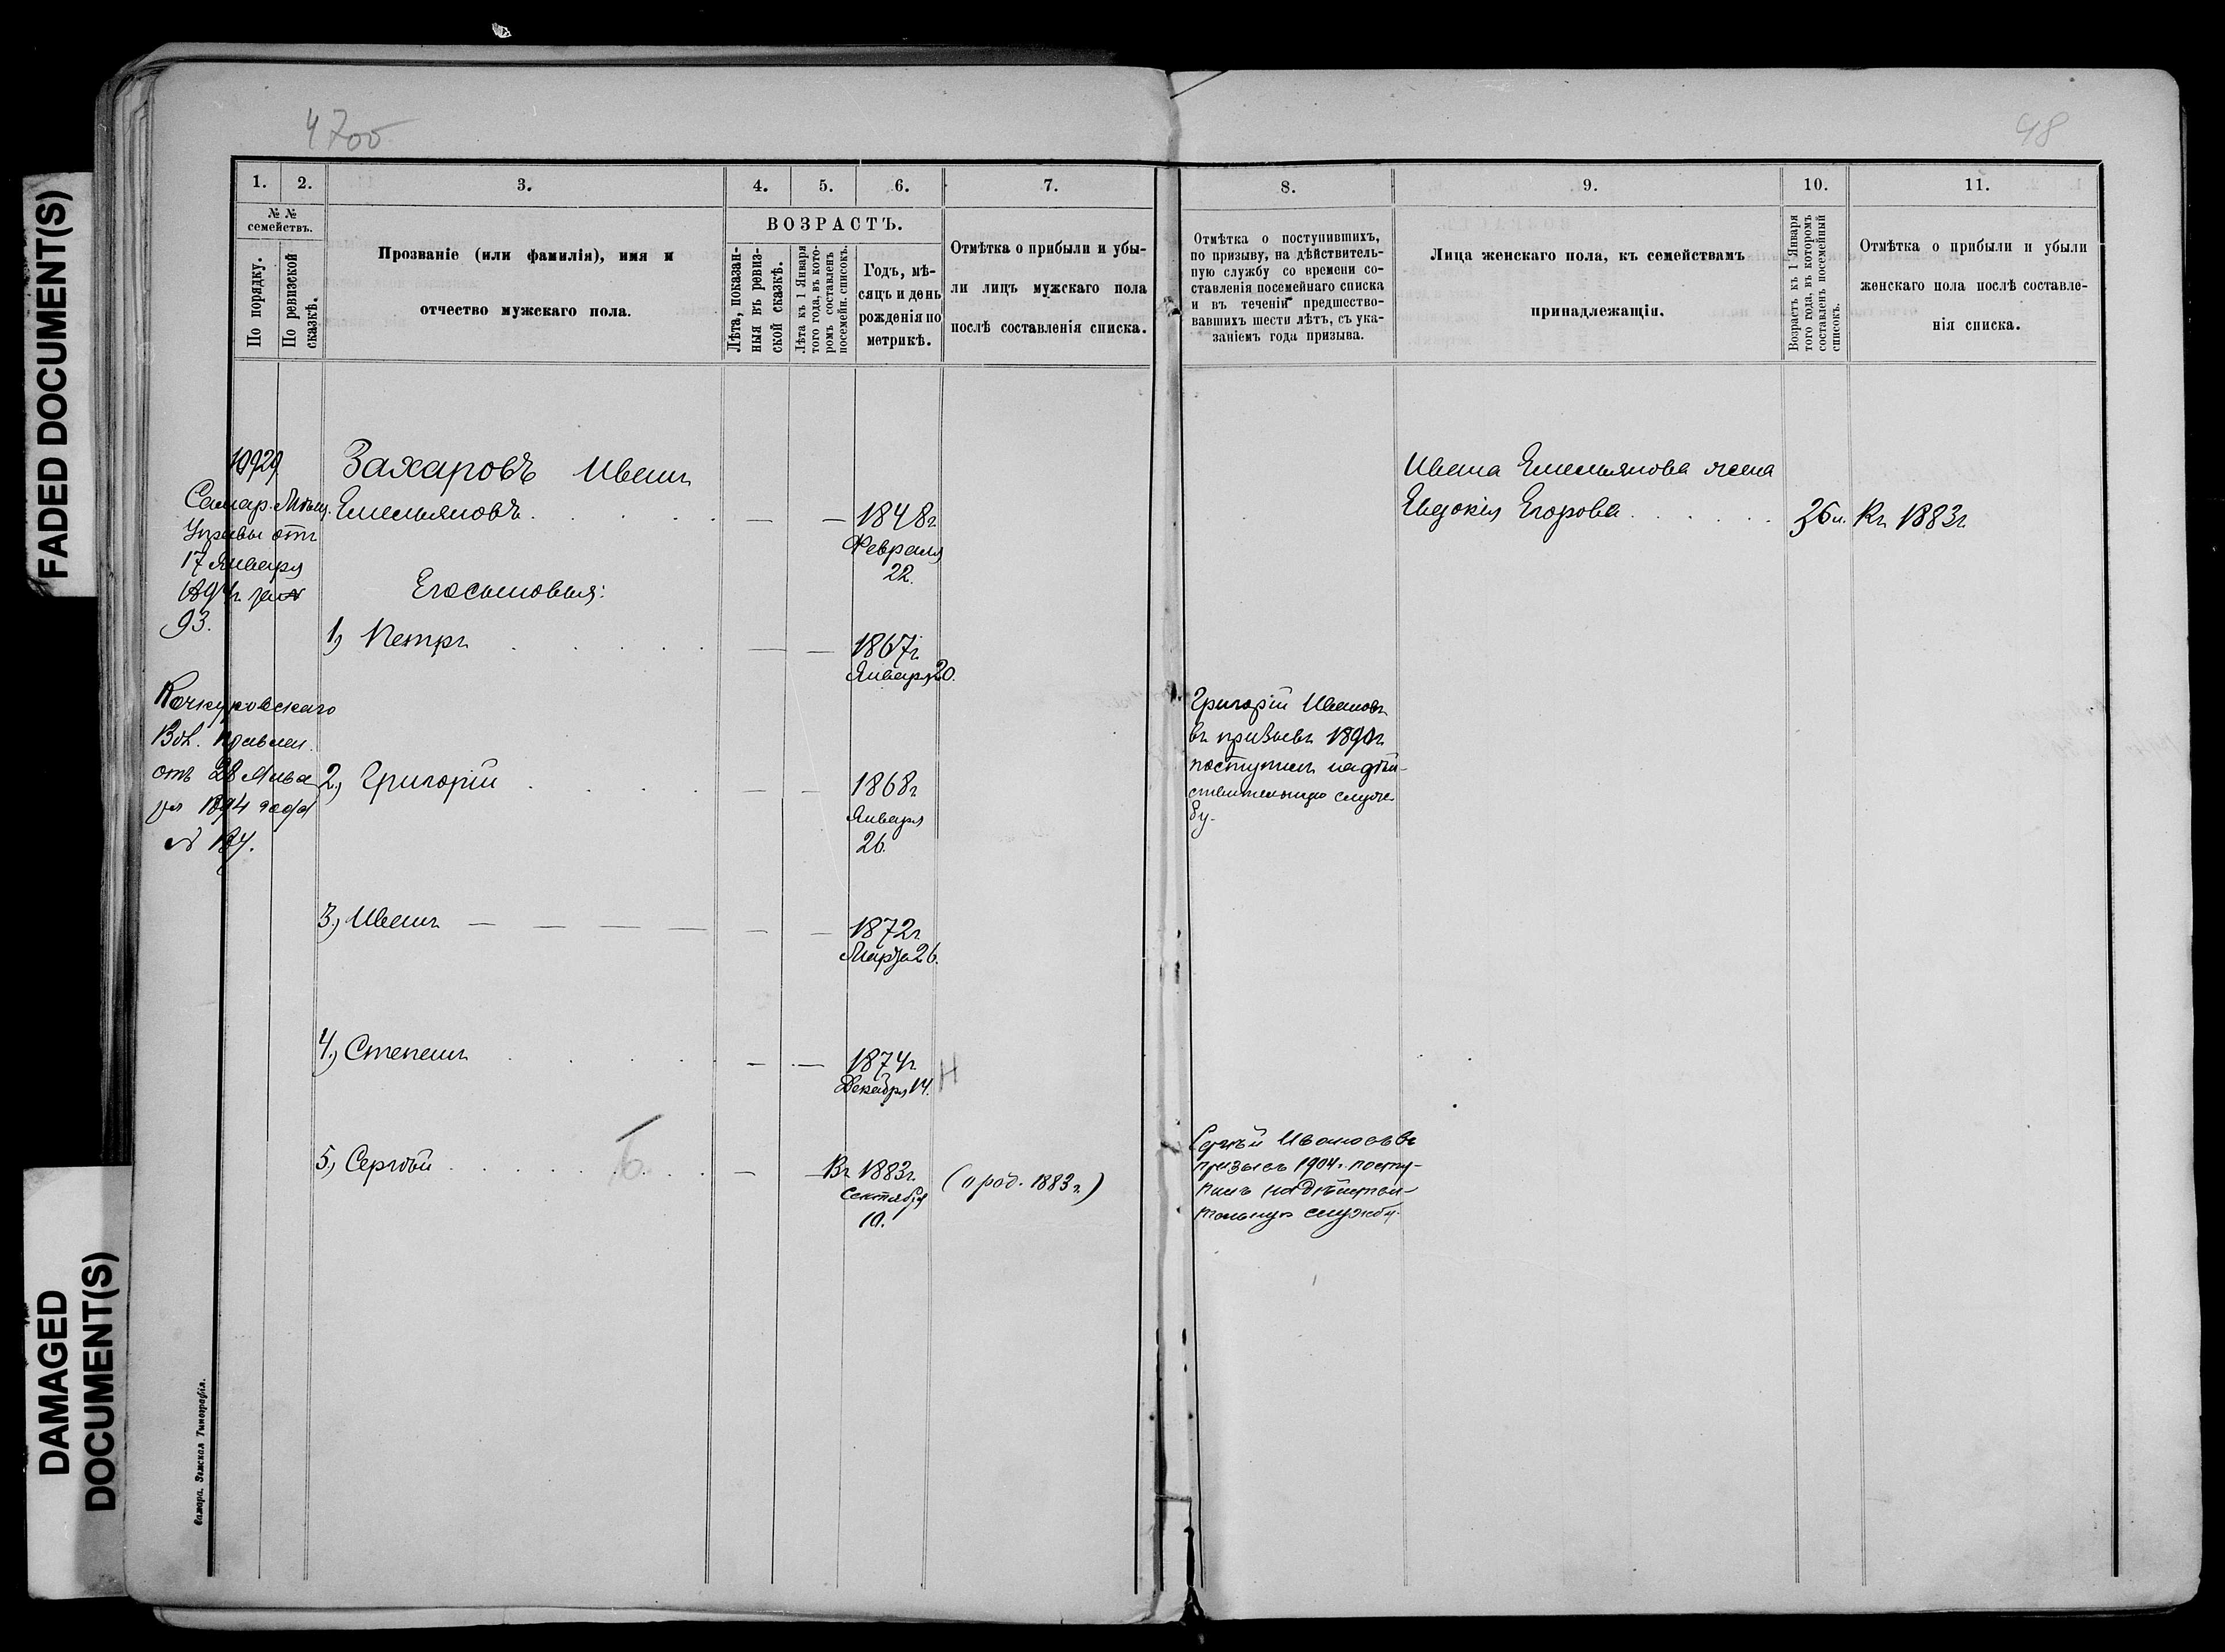 FADED DOCUMENT(S)
DAMAGED
DOCUMENT(S)
4700
48
1.
2.
3.
4.
5.
6.
7.
8.
9.
10.
11.
№ №
семействъ.
По порядку.
По ревизской
сказкѣ.
Прозваніе (или фамилія), имя и
отчество мужскаго пола.
ВОЗРАСТЪ.
Лѣта, показан-
ныя въ ревиз-
ской сказкѣ.
Лѣта къ 1 Января
того года, въ кото-
ромъ составленъ
посемейн. списокъ.
Годъ, мѣ-
сяцъ и день
рожденія по
метрикѣ.
Отмѣтка о прибыли и убы-
ли лицъ мужскаго пола
послѣ составленія списка.
Отмѣтка о поступившихъ,
по призыву, на дѣйствитель-
ную службу со времени со-
ставленія посемейнаго списка
и въ теченіи предшество-
вавшихъ шести лѣтъ, съ ука-
заніемъ года призыва.
Лица женскаго пола, къ семействамъ
принадлежащія.
Возрастъ къ 1 Января
того года, въ которомъ
составленъ посемейный
списокъ.
Отмѣтка о прибыли и убыли
женскаго пола послѣ составле-
нія списка.
Самар. Мѣщ.
Управы отъ
17 Января
1894 г. за №
93.
Кочкуровскаго
Вол. Правлен.
отъ 28 Янва
ря 1894 года
№
Захаровъ Иванъ
Емельяновъ
1848 г.
Февраля
22.
Его сыновья:
1) Петръ
1867 г.
Января 20.
2) Григорій
1868 г.
Января
26.
3) Иванъ
1872 г.
Марта 26.
4) Степанъ
1874 г.
Декабря 14.
Н
5) Сергѣй
Б
Къ 1883 г.
Сентября
10.
(о род. 1883 г.)
Григорій Ивановъ
въ призывъ 1890 г.
поступилъ на дѣй-
ствительную служ-
бу.
Сергѣй Ивановъ въ
призывъ 1904 г. посту-
пилъ на дѣйстви-
тельную службу.
Ивана Емельянова жена
Евдокія Егорова
36 л.
Къ 1883 г.
Самара. Земская Типографія.